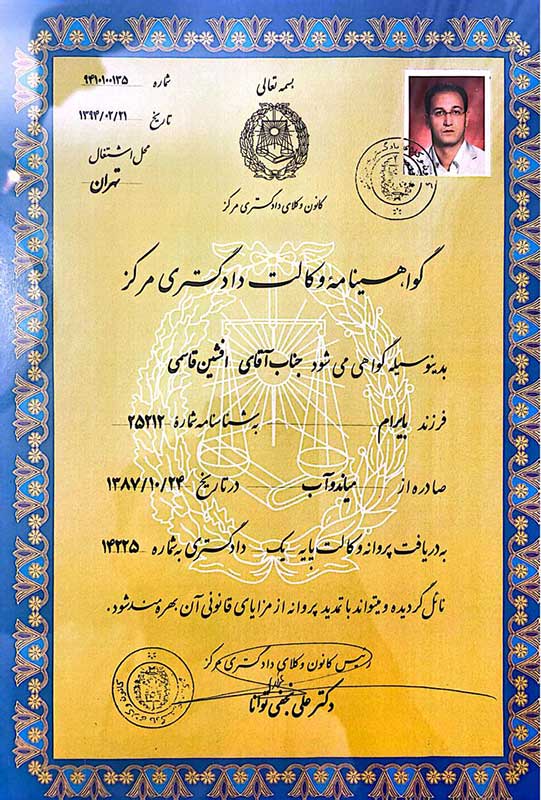 بسمه تعالی
شماره ۹۴۱۰۱۰۰۱۳۵
تاریخ ۱۳۹۴/۰۲/۲۱
محل اشتغال
تهران
کانون وکلای دادگستری مرکز
گواهینامه وکالت دادگستری مرکز
بدینوسیله گواهی می شود جناب آقای افشین قاسمی
فرزند بایرام به شناسنامه شماره ۲۵۲۱۲
صادره از میاندوآب در تاریخ ۱۳۸۷/۱۰/۲۴
به دریافت پروانه وکالت پایه یک دادگستری به شماره ۱۴۲۲۵
نائل گردیده و میتواند با تمدید پروانه از مزایای قانونی آن بهره مند شود.
رئیس کانون وکلای دادگستری مرکز
دکتر علی نجفی توانا